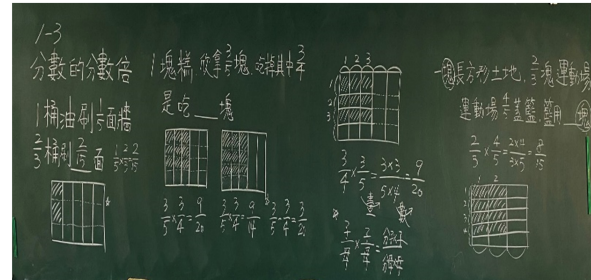 1-3
分數的分數倍
1桶油刷1/5面牆
2/3桶刷2/15面 1/5×2/3=2/15
1塊糕,欣拿3/5塊,吃掉其中3/4
是吃__塊
3/5×3/4=9/20
3/5×3/4=9/
3/5×3/4=3/
1 2 3
1
2
3
3/4×3/5=3×3/5×4=9/20
一塊長方形土地,2/3塊運動場
運動場4/5蓋籃,籃用__塊
2/3×4/5=2×4/3×5=8/15
1 2
1
2
3
4